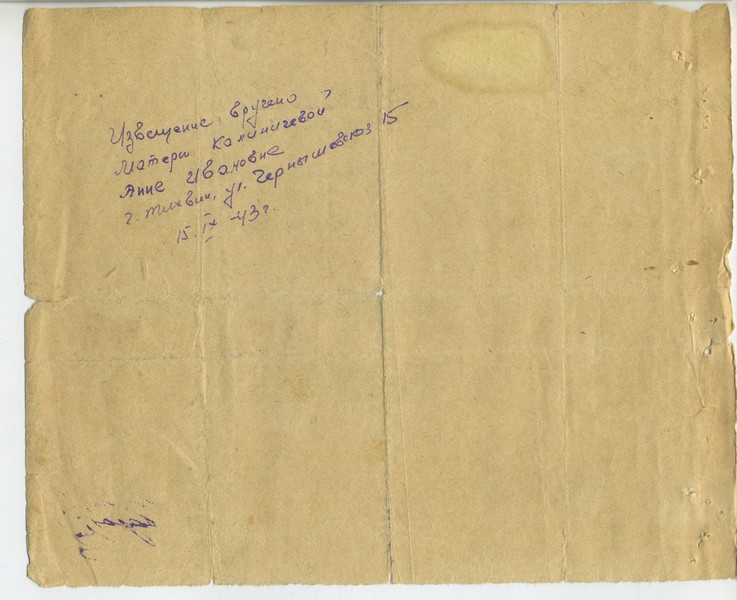 Извещение вручено
Матери Калиничевой
Анне Ивановне
г. Тихвин, ул. Чернышевская 15
15. IX -43 г.